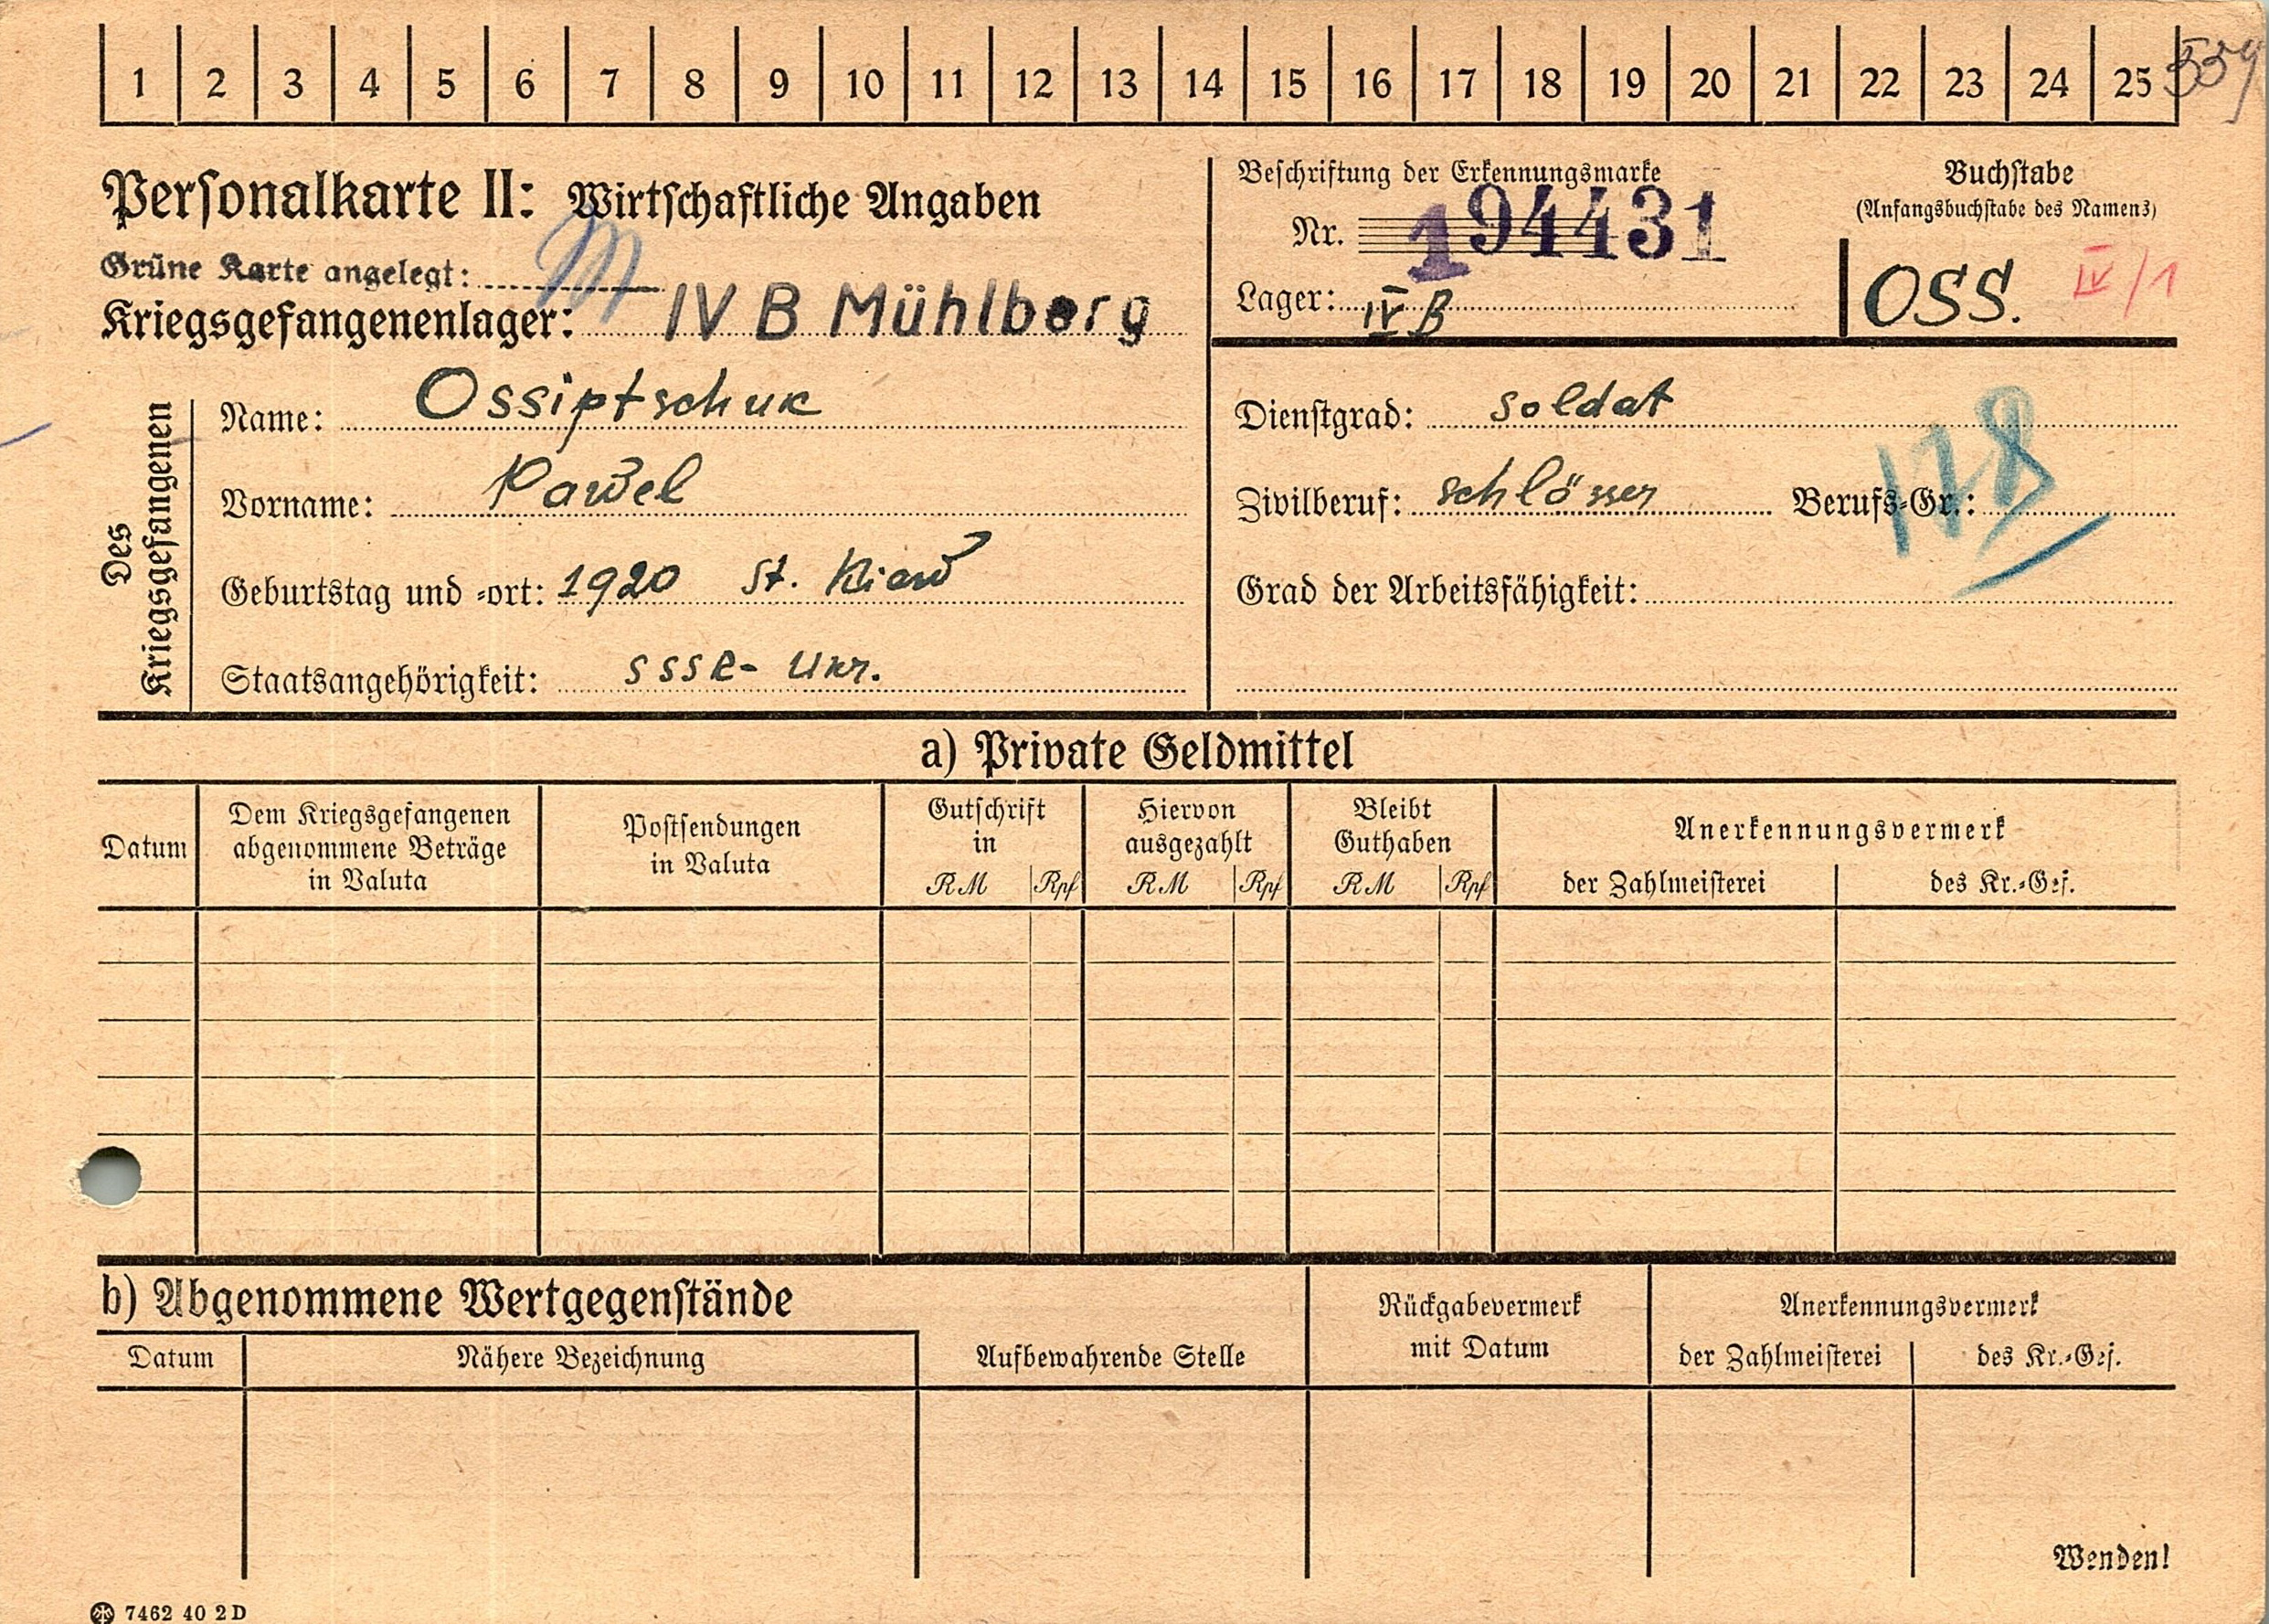 1 2 3 4 5 6 7 8 9 10 11 12 13 14 15 16 17 18 19 20 21 22 23 24 25 559
Personalkarte II: Wirtschaftliche Angaben
Grüne Karte angelegt:
Kriegsgefangenenlager: IV B Mühlberg
Beschriftung der Erkennungsmarke
Nr. 194431
Lager: IV B
Buchstabe
(Anfangsbuchstabe des Namens)
OSS. IV/1
Des Kriegsgefangenen
Name: Ossiptschuk
Vorname: Pawel
Geburtstag und -ort: 1920 St. Kiew
Staatsangehörigkeit: SSSR- Ukr.
Dienstgrad: Soldat
Zivilberuf: Schlösser Berufs-Gr.: 178
Grad der Arbeitsfähigkeit:
a) Private Geldmittel
Datum
Dem Kriegsgefangenen
abgenommene Beträge
in Valuta
Postsendungen
in Valuta
Gutschrift
in
RM Rpf
Hiervon
ausgezahlt
RM Rpf
Bleibt
Guthaben
RM Rpf
Anerkennungsvermerk
der Zahlmeisterei des Kr.-Gef.
b) Abgenommene Wertgegenstände
Datum Nähere Bezeichnung
Aufbewahrende Stelle
Rückgabevermerk
mit Datum
Anerkennungsvermerk
der Zahlmeisterei des Kr.-Gef.
Wenden!
7462 40 2 D